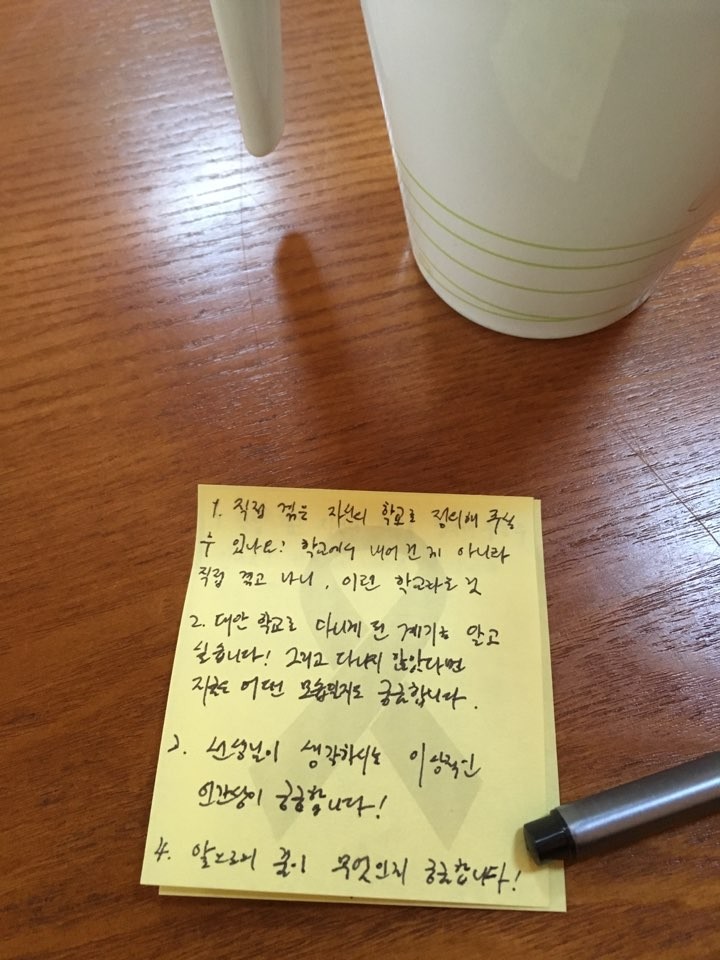 1. 직접 겪은 자신의 학교를 정의해 주실
수 있나요? 학교에서 내어 건 게 아니라
직접 겪고 나니, 이런 학교라는 것
2. 대안 학교를 다니게 된 계기를 알고
싶습니다! 그리고 다니지 않았다면
지금은 어떤 모습일지도 궁금합니다.
3. 선생님이 생각하시는 이상적인
인간상이 궁금합니다!
4. 앞으로의 꿈이 무엇인지 궁금합니다!